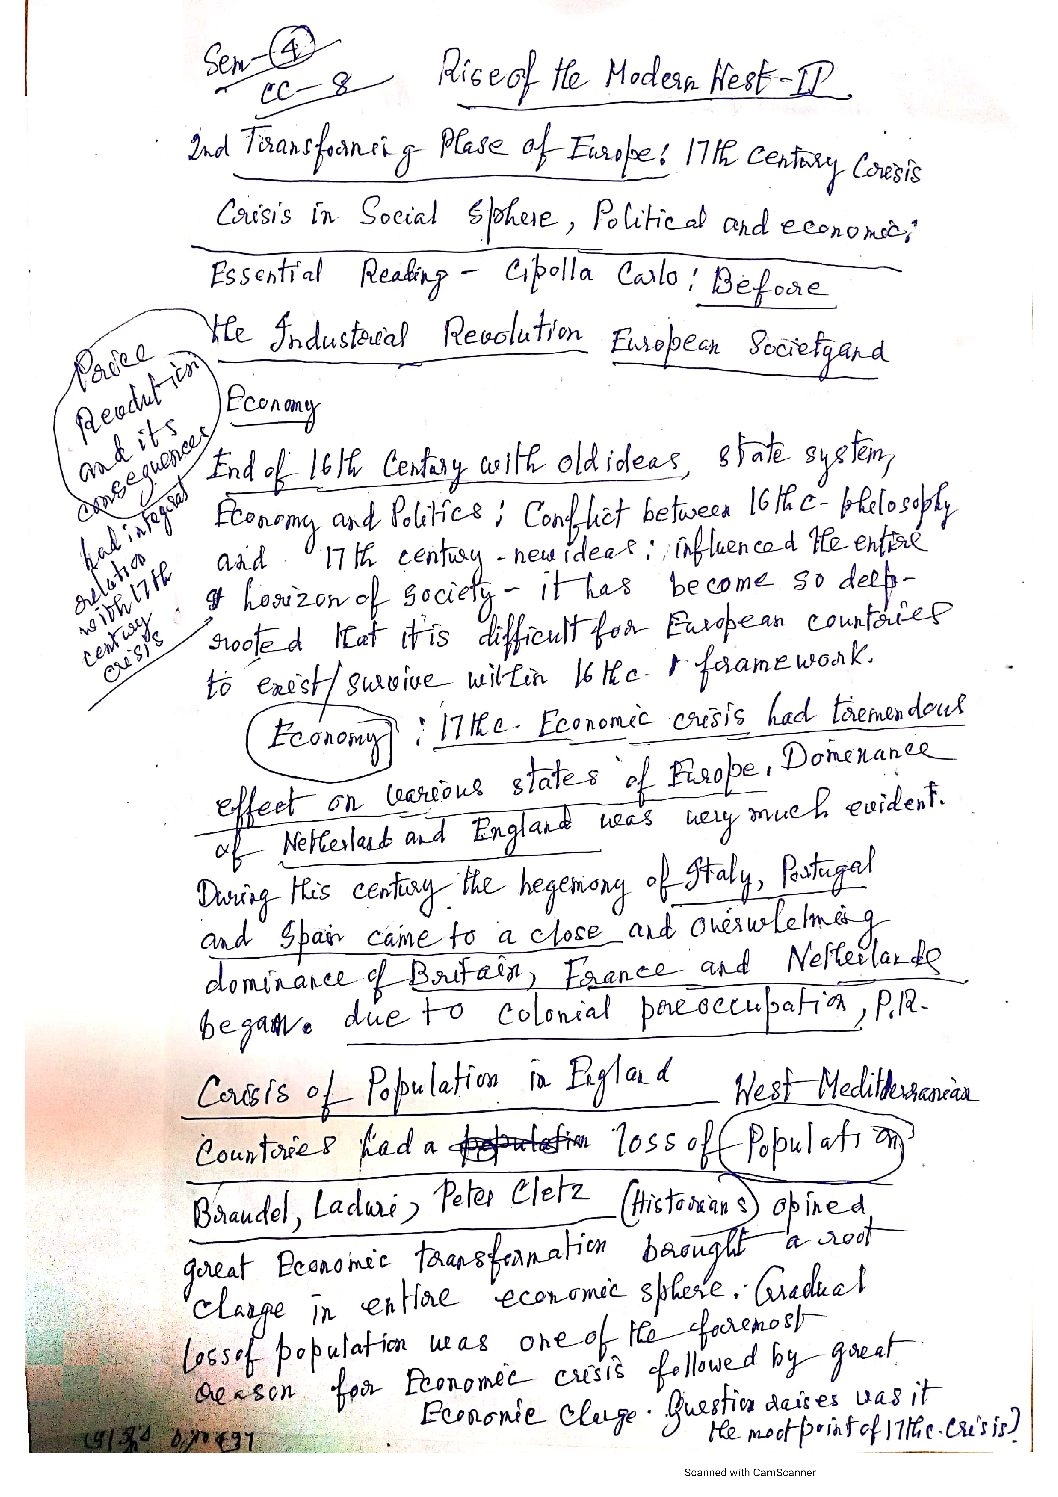 Sem-4
CC-8
Rise of the Modern West-II
2nd Transforming Phase of Europe: 17th Century Crisis
Crisis in Social Sphere, Political and economic;
Essential Reading - Cipolla Carlo: Before
the Industrial Revolution European Society and
Economy
Price
Revolution
and its
consequences
had integral
relation
with 17th
century
crisis
End of 16th Century with old ideas, state system,
Economy and Politics; Conflict between 16th c- philosophy
and 17th century - new ideas; influenced the entire
horizon of society - it has become so deep-
rooted that it is difficult for European countries
to exist/survive within 16th c. framework.
Economy: 17th c. Economic crisis had tremendous
effect on various states of Europe. Dominance
of Netherland and England was very much evident.
During this century the hegemony of Italy, Portugal
and Spain came to a close and overwhelming
dominance of Britain, France and Netherlands
began. due to colonial preoccupation, P.R.
Crisis of Population in England West Mediterranean
Countries had a population loss of Population
Braudel, Laduri, Peter (Historians) opined
great Economic transformation brought a root
change in entire economic sphere. Gradual
loss of population was one of the foremost
reason for Economic crisis followed by great
Economic change. Question raises was it
the moot point of 17th c. crisis?
Scanned with CamScanner